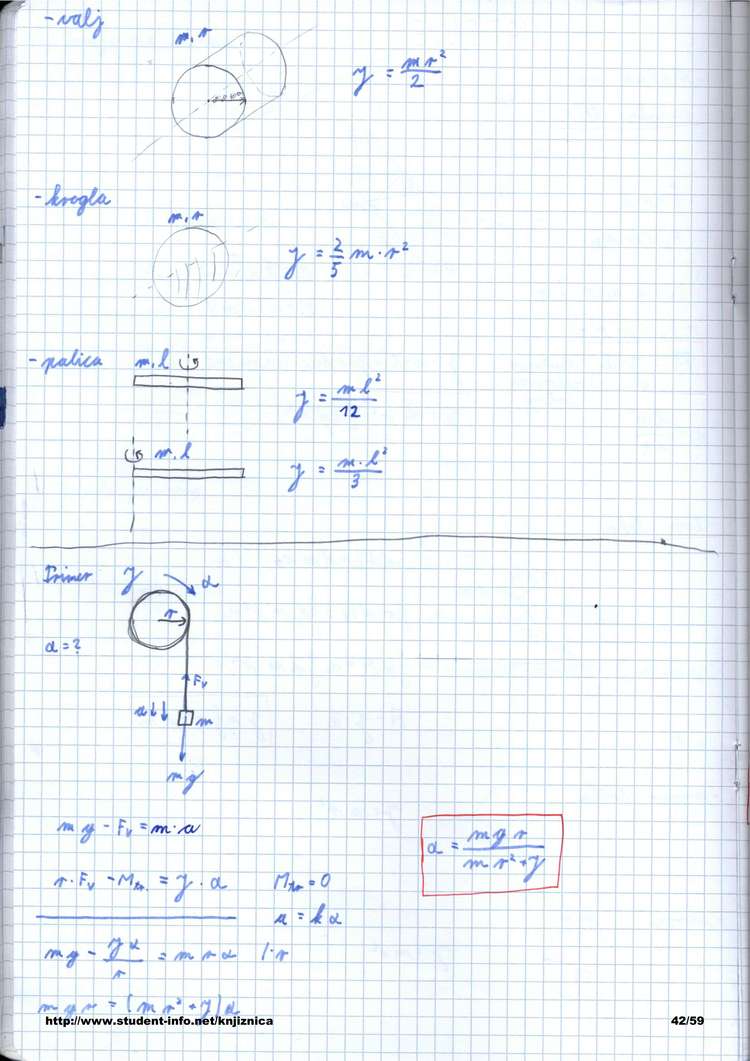 - valj
m, r
J = \frac{m r^2}{2}
- krogla
m, r
J = \frac{2}{5} m · r^2
- palica
m, l
J = \frac{m l^2}{12}
m, l
J = \frac{m · l^2}{3}
Primer
J
α
r
α = ?
F_v
a
m
mg
mg - F_v = m · a
r · F_v - M_{tr.} = J · α
M_{tr} = 0
a = k α
mg - \frac{J α}{r} = m r α /· r
m g r = (m r^2 + J) α
α = \frac{m g r}{m r^2 + J}
http://www.student-info.net/knjiznica
42/59